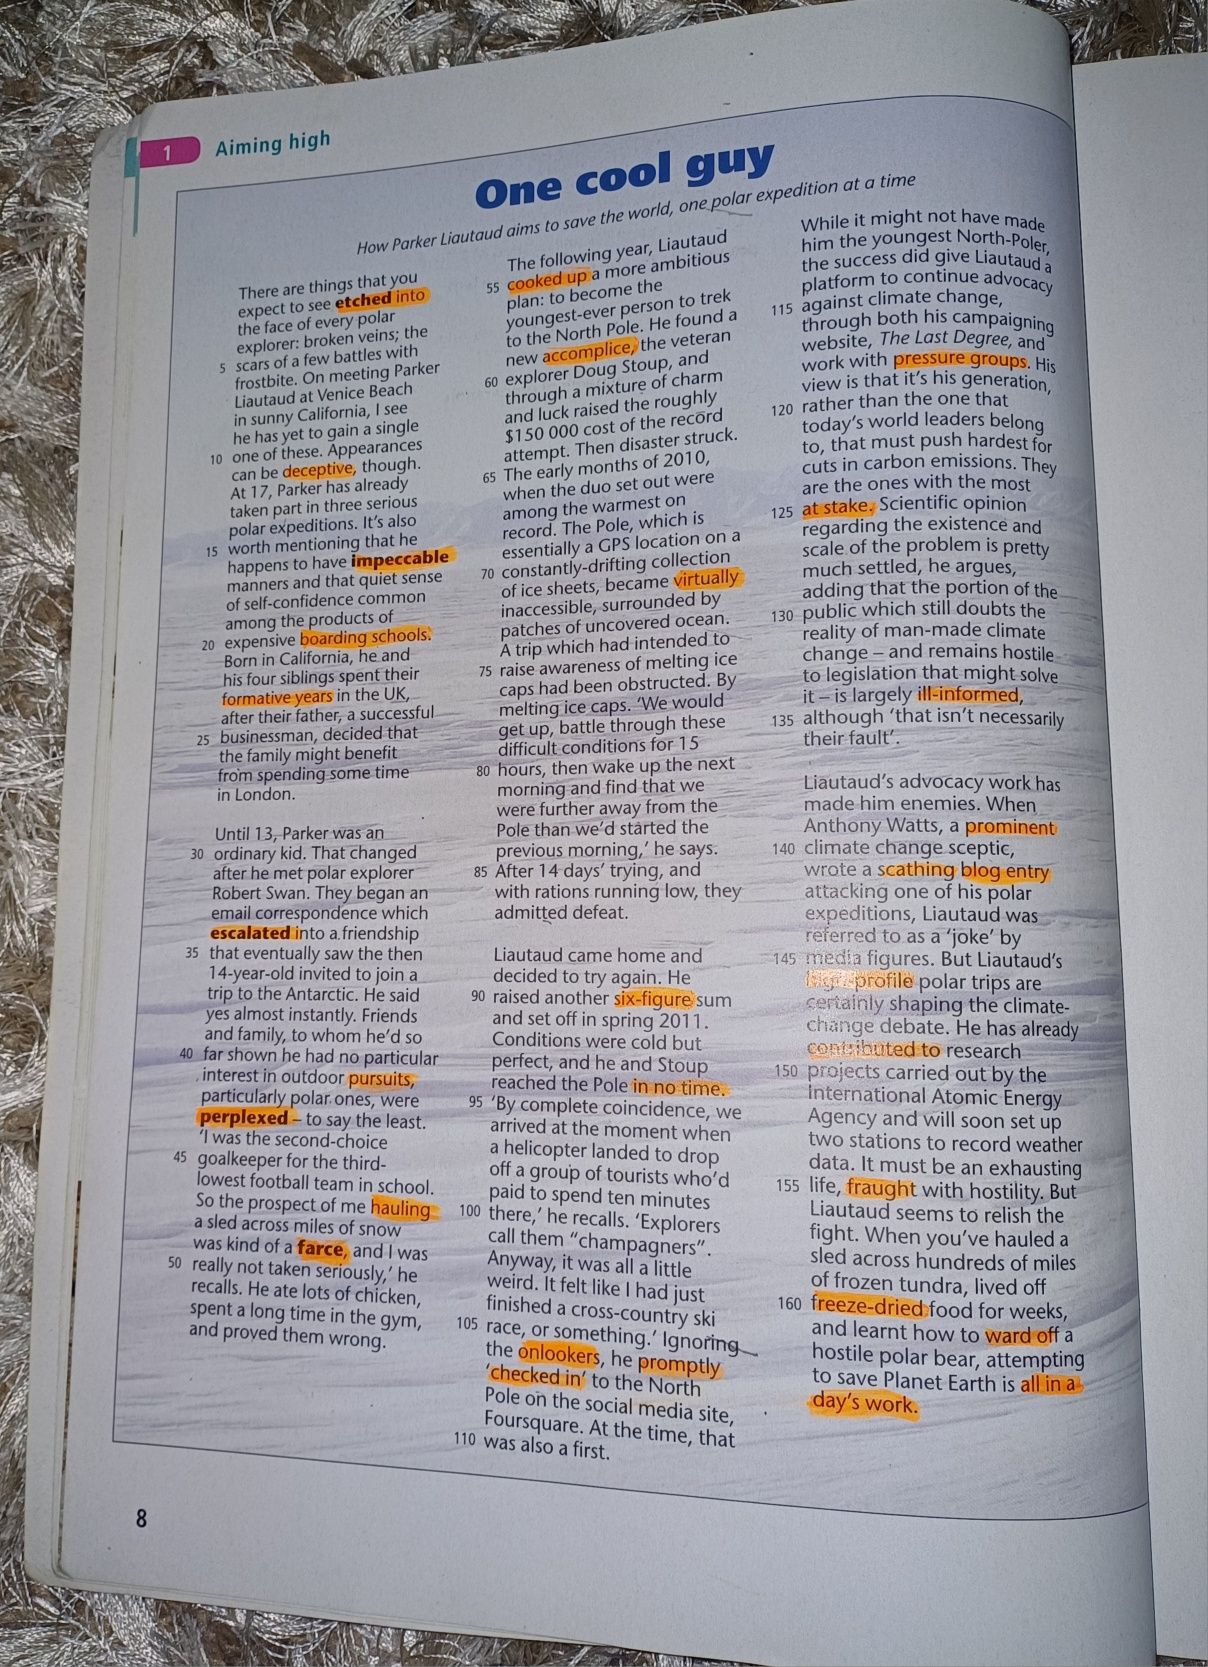 1 Aiming high
One cool guy
How Parker Liautaud aims to save the world, one polar expedition at a time
There are things that you
expect to see etched into
the face of every polar
explorer: broken veins; the
5 scars of a few battles with
frostbite. On meeting Parker
Liautaud at Venice Beach
in sunny California, I see
he has yet to gain a single
10 one of these. Appearances
can be deceptive, though.
At 17, Parker has already
taken part in three serious
polar expeditions. It's also
15 worth mentioning that he
happens to have impeccable
manners and that quiet sense
of self-confidence common
among the products of
20 expensive boarding schools.
Born in California, he and
his four siblings spent their
formative years in the UK,
after their father, a successful
25 businessman, decided that
the family might benefit
from spending some time
in London.
Until 13, Parker was an
30 ordinary kid. That changed
after he met polar explorer
Robert Swan. They began an
email correspondence which
escalated into a friendship
35 that eventually saw the then
14-year-old invited to join a
trip to the Antarctic. He said
yes almost instantly. Friends
and family, to whom he'd so
40 far shown he had no particular
interest in outdoor pursuits,
particularly polar ones, were
perplexed – to say the least.
'I was the second-choice
45 goalkeeper for the third-
lowest football team in school.
So the prospect of me hauling
a sled across miles of snow
was kind of a farce, and I was
50 really not taken seriously,' he
recalls. He ate lots of chicken,
spent a long time in the gym,
and proved them wrong.
The following year, Liautaud
55 cooked up a more ambitious
plan: to become the
youngest-ever person to trek
to the North Pole. He found a
new accomplice, the veteran
60 explorer Doug Stoup, and
through a mixture of charm
and luck raised the roughly
$150 000 cost of the record
attempt. Then disaster struck.
65 The early months of 2010,
when the duo set out were
among the warmest on
record. The Pole, which is
essentially a GPS location on a
70 constantly-drifting collection
of ice sheets, became virtually
inaccessible, surrounded by
patches of uncovered ocean.
A trip which had intended to
75 raise awareness of melting ice
caps had been obstructed. By
melting ice caps. 'We would
get up, battle through these
difficult conditions for 15
80 hours, then wake up the next
morning and find that we
were further away from the
Pole than we'd started the
previous morning,' he says.
85 After 14 days' trying, and
with rations running low, they
admitted defeat.
Liautaud came home and
decided to try again. He
90 raised another six-figure sum
and set off in spring 2011.
Conditions were cold but
perfect, and he and Stoup
reached the Pole in no time.
95 'By complete coincidence, we
arrived at the moment when
a helicopter landed to drop
off a group of tourists who'd
paid to spend ten minutes
100 there,' he recalls. 'Explorers
call them "champagners".
Anyway, it was all a little
weird. It felt like I had just
finished a cross-country ski
105 race, or something.' Ignoring
the onlookers, he promptly
'checked in' to the North
Pole on the social media site,
Foursquare. At the time, that
110 was also a first.
While it might not have made
him the youngest North-Poler,
the success did give Liautaud a
platform to continue advocacy
115 against climate change,
through both his campaigning
website, The Last Degree, and
work with pressure groups. His
view is that it's his generation,
120 rather than the one that
today's world leaders belong
to, that must push hardest for
cuts in carbon emissions. They
are the ones with the most
125 at stake. Scientific opinion
regarding the existence and
scale of the problem is pretty
much settled, he argues,
adding that the portion of the
130 public which still doubts the
reality of man-made climate
change – and remains hostile
to legislation that might solve
it – is largely ill-informed,
135 although 'that isn't necessarily
their fault'.
Liautaud's advocacy work has
made him enemies. When
Anthony Watts, a prominent
140 climate change sceptic,
wrote a scathing blog entry
attacking one of his polar
expeditions, Liautaud was
referred to as a 'joke' by
145 media figures. But Liautaud's
high-profile polar trips are
certainly shaping the climate-
change debate. He has already
contributed to research
150 projects carried out by the
International Atomic Energy
Agency and will soon set up
two stations to record weather
data. It must be an exhausting
155 life, fraught with hostility. But
Liautaud seems to relish the
fight. When you've hauled a
sled across hundreds of miles
of frozen tundra, lived off
160 freeze-dried food for weeks,
and learnt how to ward off a
hostile polar bear, attempting
to save Planet Earth is all in a
day's work.
8